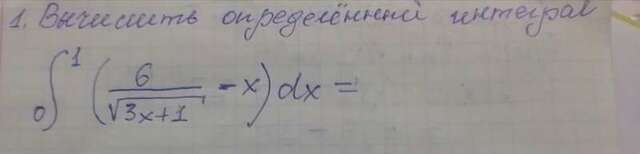 1. Вычислить определённый интеграл
∫₀¹ (6/√(3x+1) - x) dx =